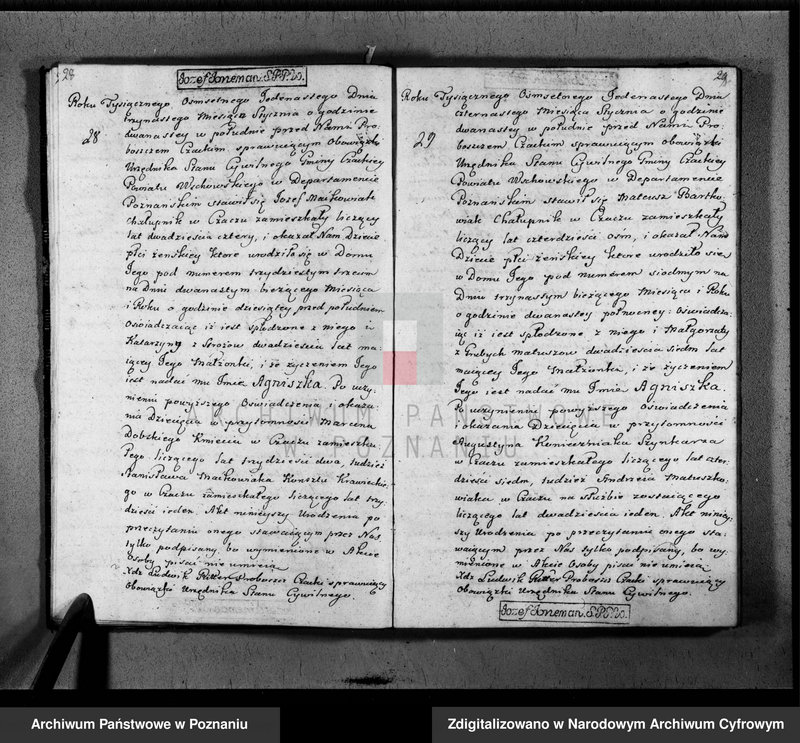 28
Jozef Joneman. S.P.P.W.
28
Roku Tysiącznego Osmsetnego Jedenastego Dnia
trzynastego Miesiąca Stycznia o godzinie
dwanastey w południe przed Nami Pro-
boszczem Czackim sprawuiącym Obowiązki
Urzędnika Stanu Cywilnego Gminy Czackiey
Powiatu Wschowskiego w Departamencie
Poznańskim stawił się Jozef Maćkowiak
Chałupnik w Czaczu zamieszkały liczący
lat dwadzieścia cztery, i okazał Nam Dziecie
płci żenskiey ktore urodziło się w Domu
Jego pod numerem trzydziestym trzecim
na Dniu dwanastym bieżącego Miesiąca
i Roku o godzinie dziesiątey przed południem
Oświadczaiąc iż iest spłodzone z niego i
Katarzyny z Strozow dwadzieścia lat ma-
iącey Jego Małżonki, i że życzeniem Jego
iest nadać mu Imie Agniszka. Po uczy-
nieniu powyższego Oświadczenia i okaza-
nia Dziecięcia w przytomności Marcina
Dobskiego Kmiecia w Czaczu zamieszka-
łego liczącego lat trzydzieści dwa, tudzież
Stanisława Maćkowiaka Kunsztu Krawieckie-
go w Czaczu zamieszkałego liczącego lat trzy-
dzieści ieden. Akt ninieyszy Urodzenia po
przeczytaniu onego stawaiącym przez Nas
tylko podpisany, bo wymienione w Akcie
Osoby pisać nie umieią
Xdz Ludwik Ritter Proboszcz Czacki sprawuiący
Obowiązki Urzędnika Stanu Cywilnego.
29
29
Roku Tysiącznego Osmsetnego Jedenastego Dnia
czternastego Miesiąca Stycznia o godzinie
dwanastey w południe przed Nami Pro-
boszczem Czackim sprawuiącym Obowiązki
Urzędnika Stanu Cywilnego Gminy Czackiey
Powiatu Wschowskiego w Departamencie
Poznańskim stawił się Mateusz Bartko-
wiak Chałupnik w Czaczu zamieszkały
liczący lat czterdzieści ośm, i okazał Nam
Dziecie płci żenskiey ktore urodziło się
w Domu Jego pod numerem siodmym na
Dniu trzynastym bieżącego Miesiąca i Roku
o godzinie dwanastey połnocney: Oświadcza-
iąc iż iest spłodzone z niego i Małgorzaty
z Grubych matuszow dwadzieścia siedm lat
maiącey Jego Małżonka, i że życzeniem
Jego iest nadać mu Imie Agniszka.
Po uczynieniu powyższego Oświadczenia
i okazania Dziecięcia w przytomności
Augustyna Konieczniaka Szynkarza
w Czaczu zamieszkałego liczącego lat czter-
dzieści siedm, tudzież Andrzeia Matuszko-
wiaka w Czaczu na służbie zostaiącego
liczącego lat dwadzieścia ieden. Akt niniey-
szy Urodzenia po przeczytaniu onego sta-
waiącym przez Nas tylko podpisany, bo wy-
mienione w Akcie Osoby pisać nie umieią
Xdz Ludwik Ritter Proboszcz Czacki sprawuiący
Obowiązki Urzędnika Stanu Cywilnego.
Jozef Joneman. S.P.P.W.
ARCHIWUM PAŃSTWOWE
W POZNANIU
Archiwum Państwowe w Poznaniu
Zdigitalizowano w Narodowym Archiwum Cyfrowym